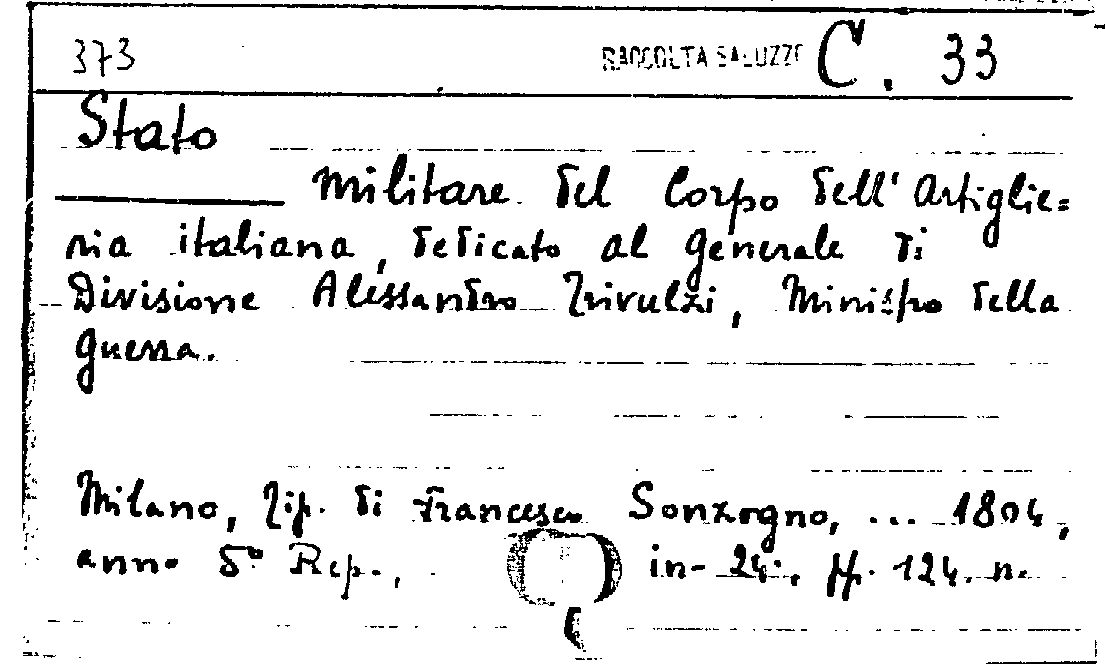 373 RACCOLTA SALUZZO C. 33
Stato
Militare del Corpo dell'Artiglie=
ria italiana, dedicato al Generale di
Divisione Alessandro Trivulzi, Ministro della
Guerra.
Milano, Tip. di Francesco Sonzogno, ... 1804,
anno 5° Rep., in-24°, ff. 124. n.